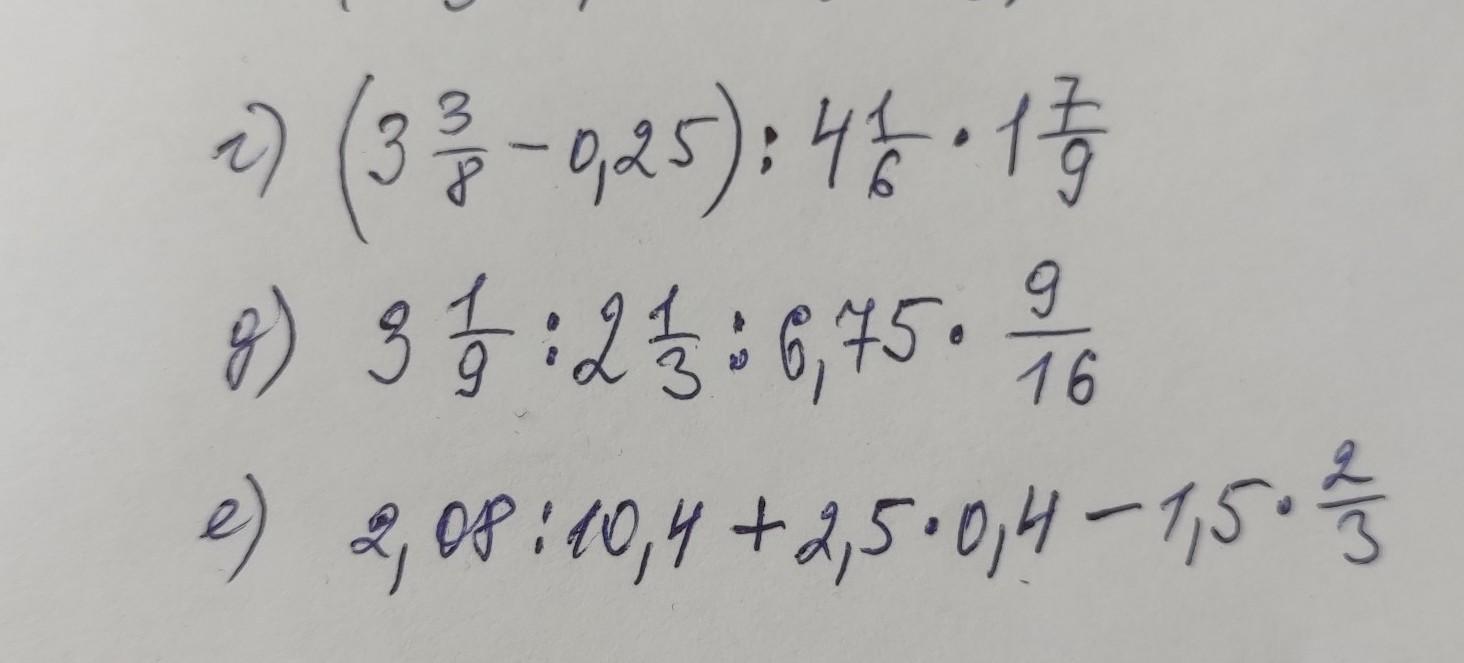 г) (3 3/8 - 0,25) : 4 1/6 · 1 7/9
д) 3 1/9 : 2 1/3 : 6,75 · 9/16
е) 2,08 : 10,4 + 2,5 · 0,4 - 1,5 · 2/3